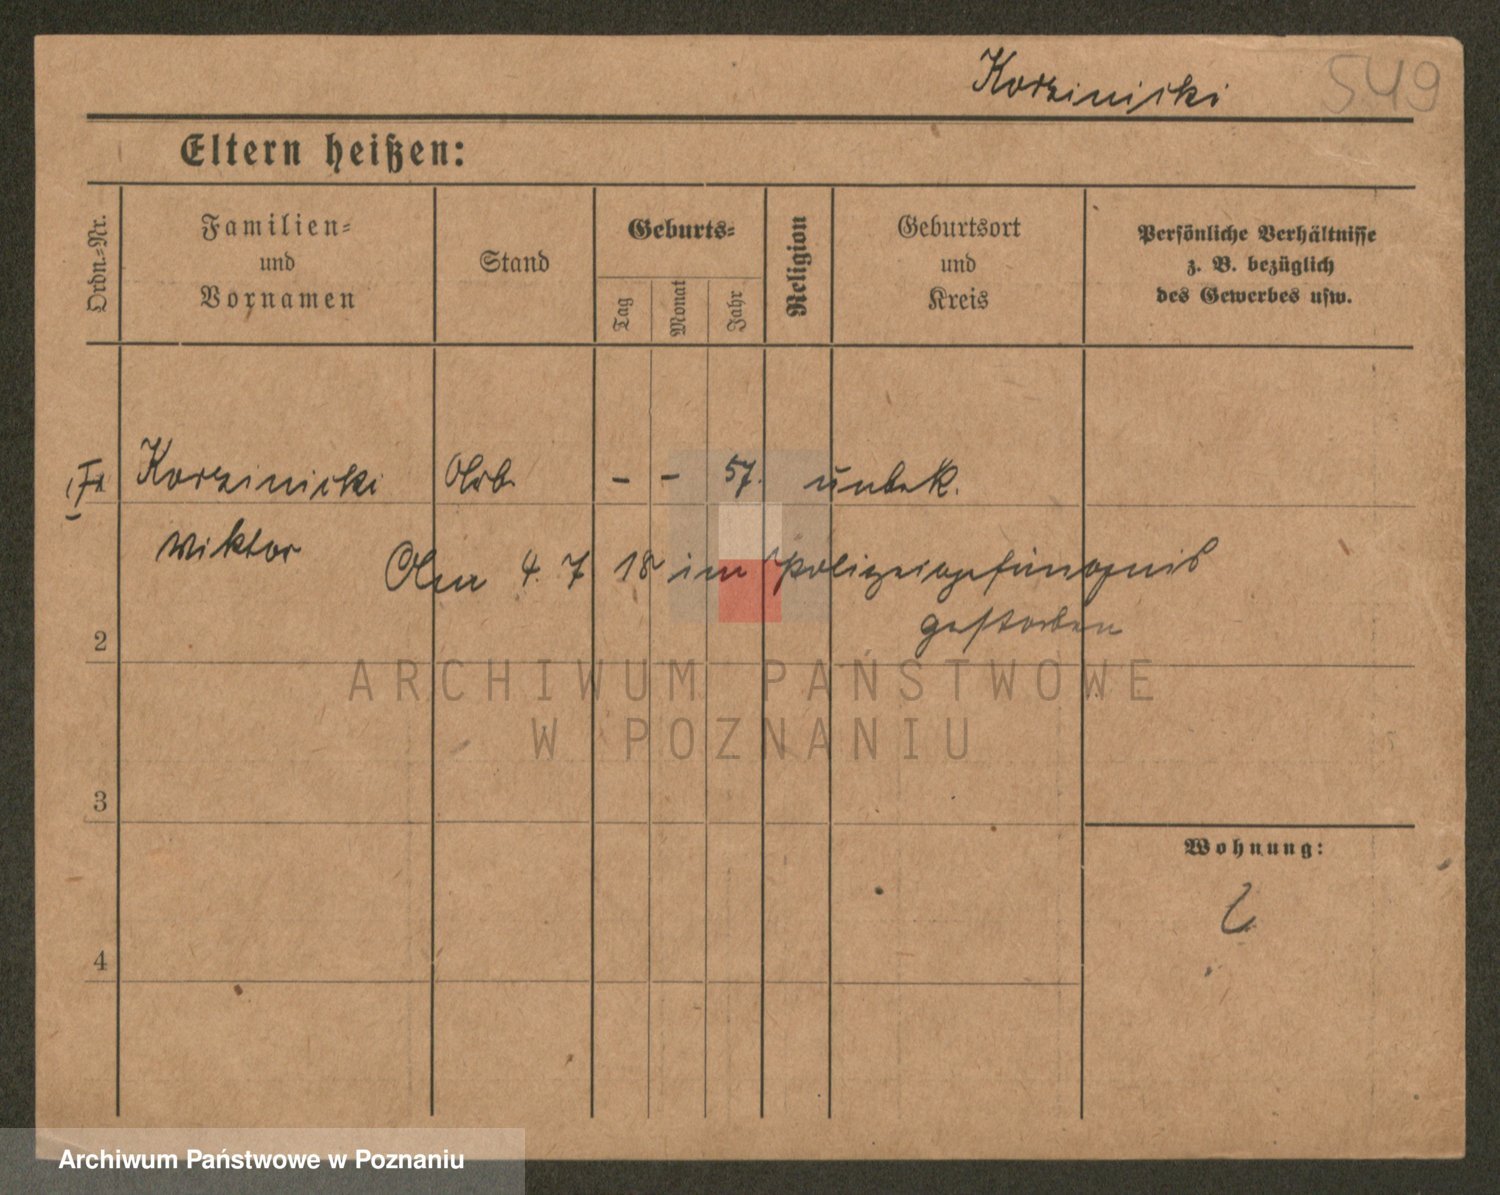 Korzinicki 549
Eltern heißen:
Ordn.-Nr.
Familien-
und
Vornamen
Stand
Geburts-
Tag
Monat
Jahr
Religion
Geburtsort
und
Kreis
Persönliche Verhältnisse
z. B. bezüglich
des Gewerbes usw.
Korzinicki Arb. - - 57. unbek.
Wiktor
Am 4. 7 18 im Polizeigefängnis
gestorben
2
ARCHIWUM PAŃSTWOWE
W POZNANIU
3
Wohnung:
4
Archiwum Państwowe w Poznaniu